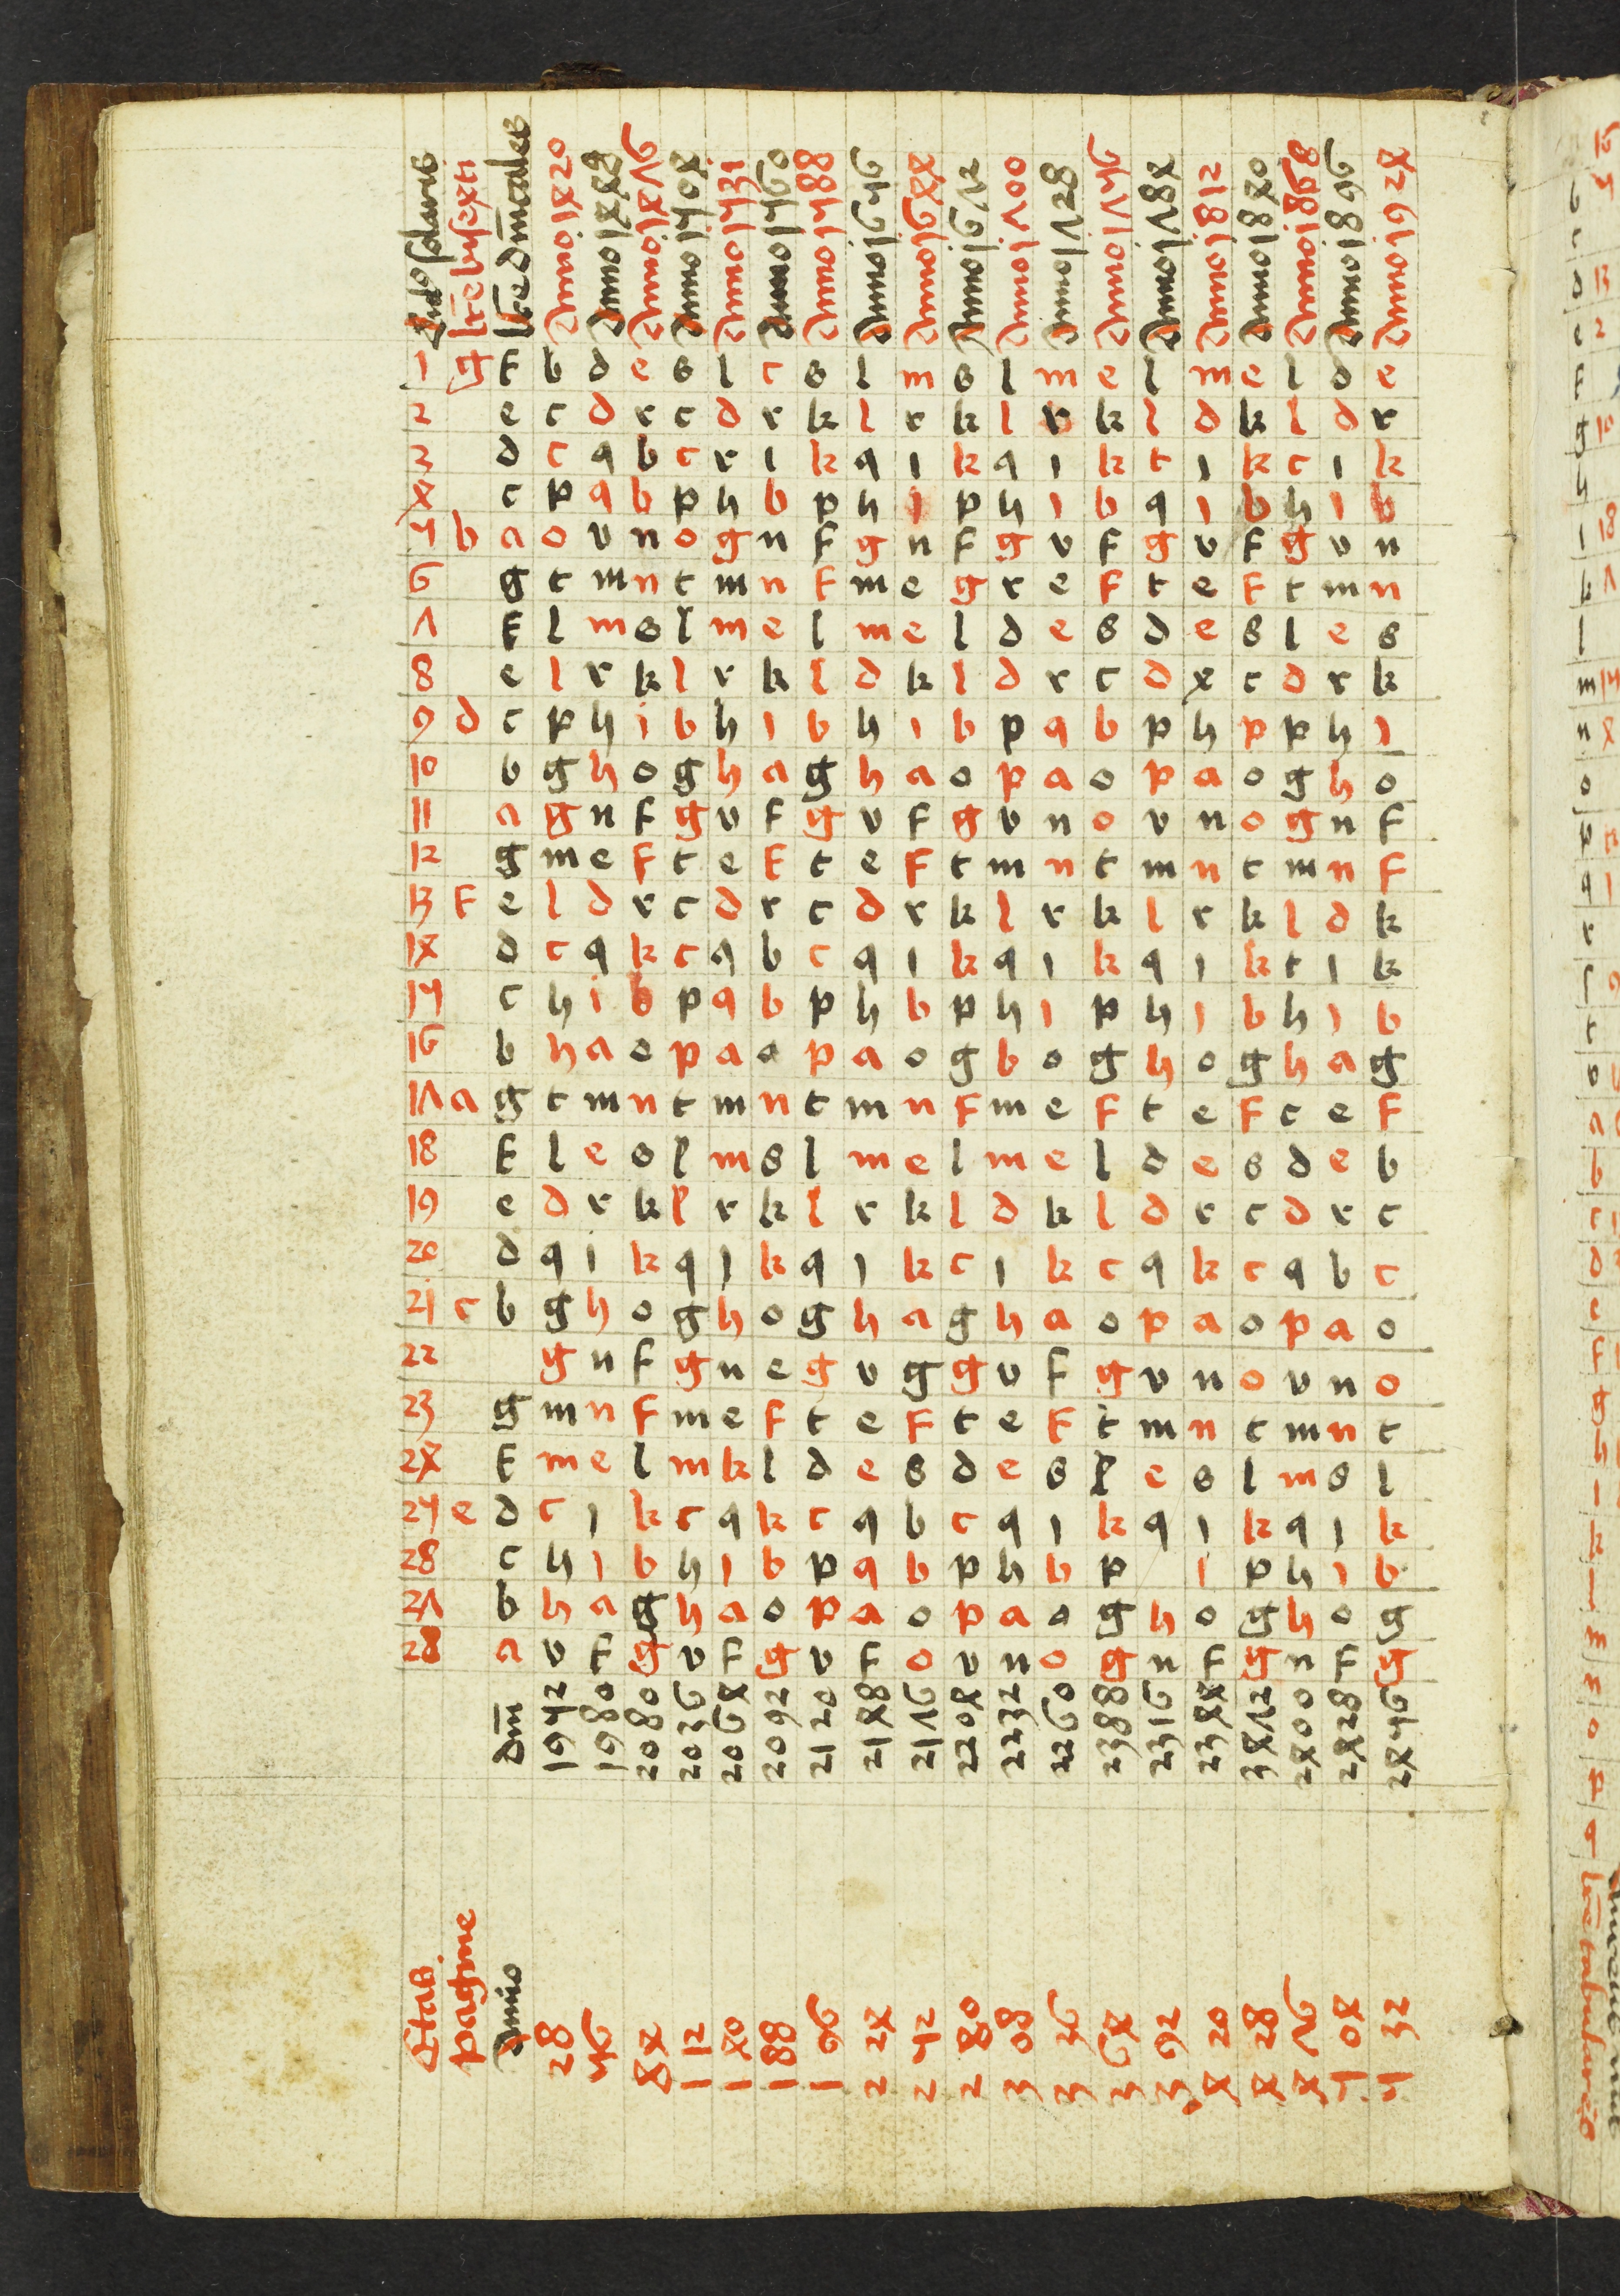 lrē bisexti
lrē dmicales
Anno 1420
Anno 1448
Anno 1476
Anno 1504
Anno 1531
Anno 1560
Anno 1588
Anno 1656
Anno 1644
Anno 1672
Anno 1700
Anno 1728
Anno 1756
Anno 1784
Anno 1812
Anno 1840
Anno 1868
Anno 1896
Anno 1924
1 g f b d e s l c s l m s l m e l m e l d e
2 e c d r c d r k l r k l r k l d k l d r
2 d c q b c r i k q i k q i k c i k c i k
4 c p q b p h b p h i p h i b q i b h i b
5 b a o v n o g n f g n f g v f g v f g v n
6 g t m n t m n f m e g r e f t e f t m n
7 f l m s l m e l m e l d e s d e s l e s
8 e l r k l r k l d k l d r c d r c d r k
9 d c p h i b h i b h i b p q b p h p p h i
10 b g h o g h a g h a o p a o p a o g h o
11 a g n f g v f g v f g v n o v n o g n f
12 g m e f t e f t e f t m n t m n t m n f
13 f e l d r c d r c d r k l r k l r k l d k
14 d c q k c q b c q i k q i k q i k c i k
15 c h i b p q b p h b p h i p h i b h i b
16 b h a o p a a p a o g b o g h o g h a g
17 a g t m n t m n t m n f m e f t e f t e f
18 f l e s l m s l m e l m e l d e s d e b
19 e d r k l r k l r k l d k l d r c d r c
20 d q i k q i k q i k c i k c q k c q b c
21 c b g h o g h o g h a g h a o p a o p a o
22 g n f g n e g v g g v f g v n o v n o
23 g m n f m e f t e f t e f t m n t m n t
24 f m e l m k l d e s d e s l e s l m s l
25 e d c i k c q k c q b c q i k q i k q i k
28 c h i b h i b p q b p h b p i p h i b
27 b h a g h a o p a o p a o g h o g h o g
28 a v f g v f g v f o v n o g n f g n f g
dm̄
1952
1980
2080
2036
2064
2092
2120
2148
2176
2204
2232
2260
2388
2316
2344
3472
2400
2428
2456
Etas
pagine
Anno
28
56
84
112
140
188
196
224
252
280
308
336
364
392
420
428
476
504
532